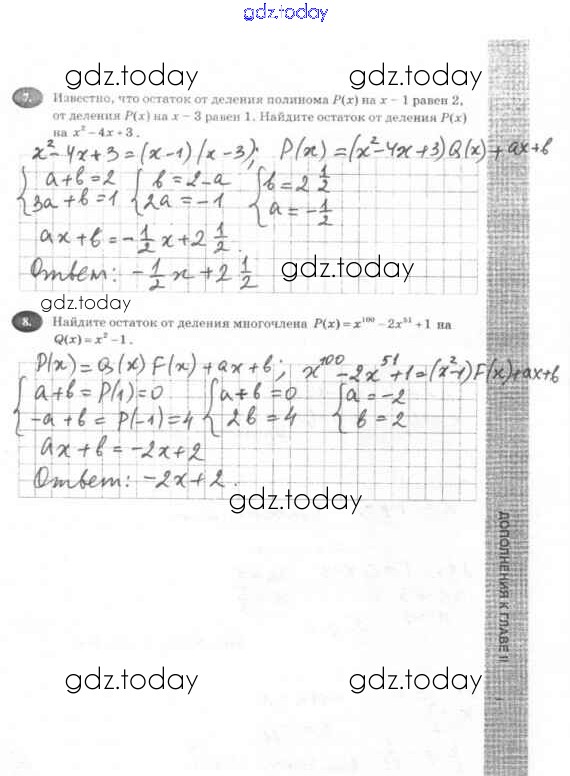 gdz.today
gdz.today gdz.today
7. Известно, что остаток от деления полинома P(x) на x − 1 равен 2,
от деления P(x) на x − 3 равен 1. Найдите остаток от деления P(x)
на x² − 4x + 3.
x² − 4x + 3 = (x−1)(x−3); P(x) = (x² − 4x + 3) Q(x) + ax + b
{ a + b = 2 { b = 2 − a { b = 2 1/2
{ 3a + b = 1 { 2a = −1 { a = −1/2
ax + b = −1/2 x + 2 1/2.
Ответ: −1/2 x + 2 1/2
gdz.today
gdz.today
8. Найдите остаток от деления многочлена P(x) = x¹⁰⁰ − 2x⁵¹ + 1 на
Q(x) = x² − 1.
P(x) = Q(x) F(x) + ax + b; x¹⁰⁰ − 2x⁵¹ + 1 = (x²−1) F(x) + ax + b
{ a + b = P(1) = 0 { a + b = 0 { a = −2
{ −a + b = P(−1) = 4 { 2b = 4 { b = 2
ax + b = −2x + 2
Ответ: −2x + 2.
gdz.today
ДОПОЛНЕНИЯ К ГЛАВЕ II
gdz.today gdz.today